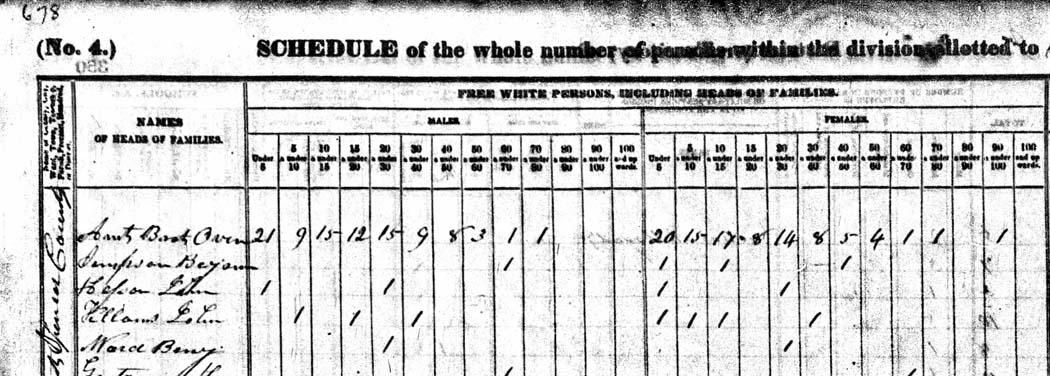 678
(No. 4.) SCHEDULE of the whole number of persons within the division allotted to
FREE WHITE PERSONS, INCLUDING HEADS OF FAMILIES.
NAMES
OF HEADS OF FAMILIES.
MALES.
FEMALES.
Under 5 5 & under 10 10 & under 15 15 & under 20 20 & under 30 30 & under 40 40 & under 50 50 & under 60 60 & under 70 70 & under 80 80 & under 90 90 & under 100 100 and upwards. Under 5 5 & under 10 10 & under 15 15 & under 20 20 & under 30 30 & under 40 40 & under 50 50 & under 60 60 & under 70 70 & under 80 80 & under 90 90 & under 100 100 and upwards.
Spencer County
Amt Brot Over 21 9 15 12 15 9 8 3 1 1 20 15 17 8 14 8 5 4 1 1 1
1 1 1 1
John 1 1 1 1
John 1 1 1 1 1 1 1
Ward Benj 1 1
1 1